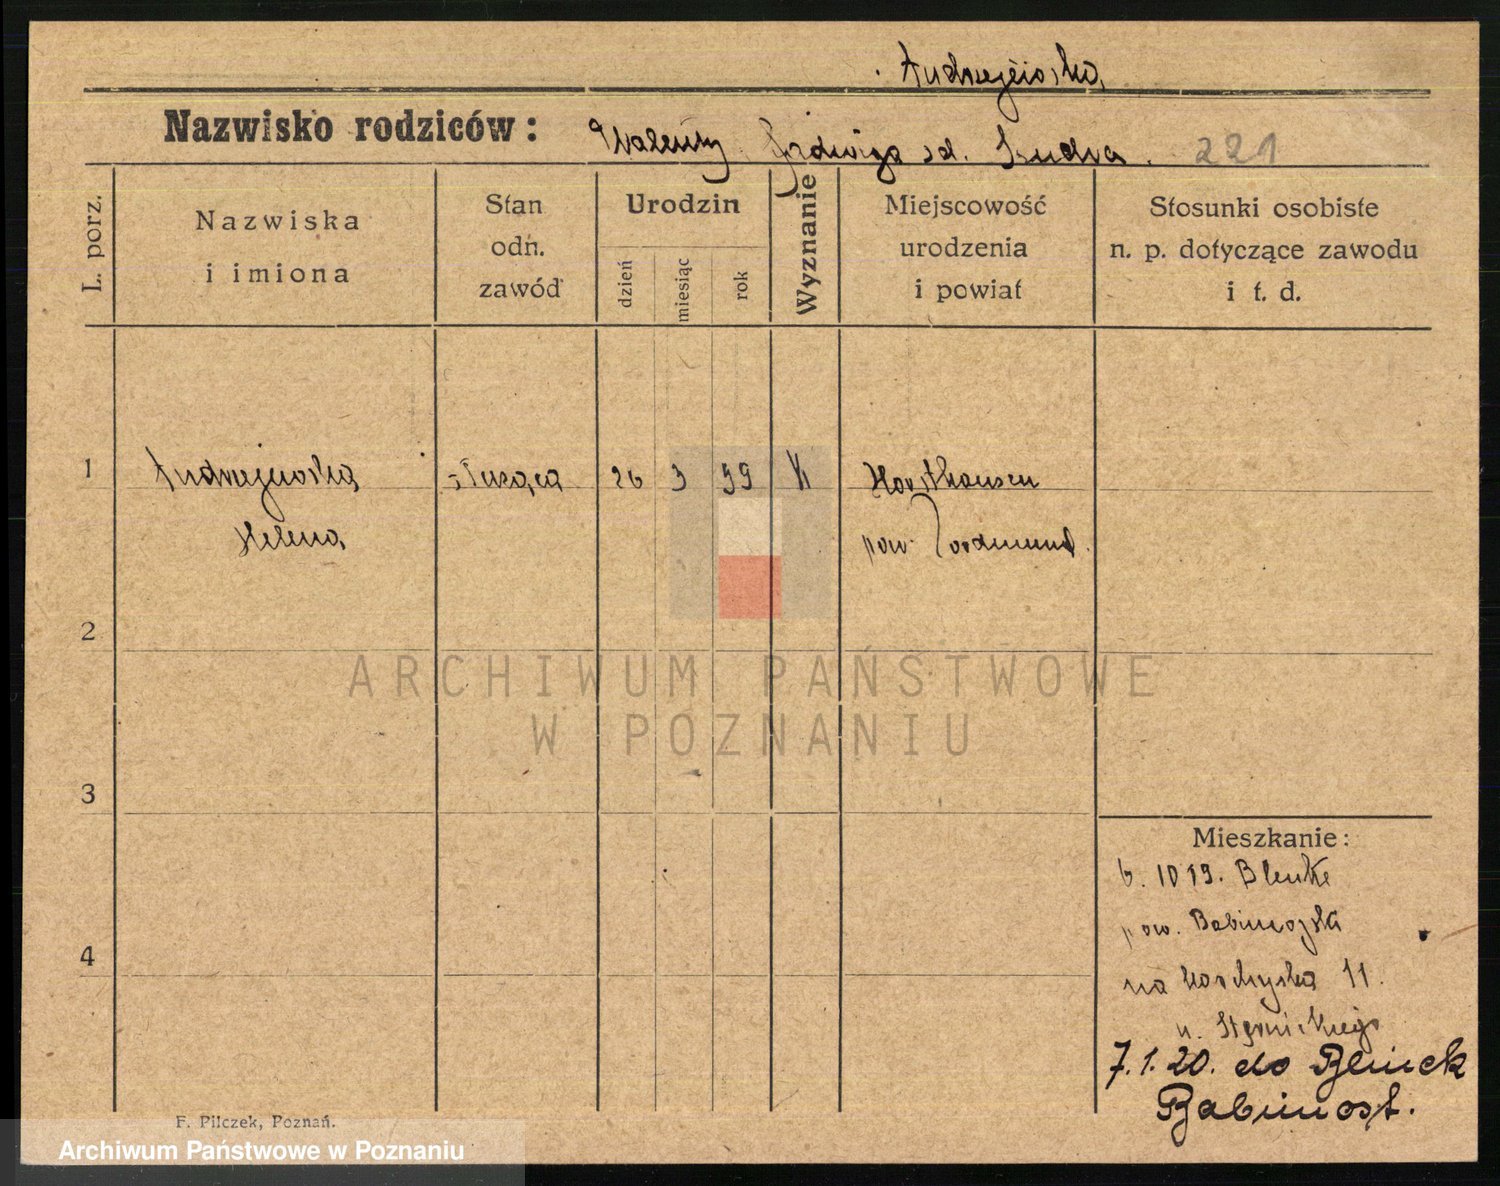 Andrzejewska
Nazwisko rodziców: Walenty Jadwiga zd. 221
L. porz.
Nazwiska
i imiona
Stan
odn.
zawód
Urodzin
dzień
miesiąc
rok
Wyznanie
Miejscowość
urodzenia
i powiat
Stosunki osobiste
n. p. dotyczące zawodu
i t. d.
1 Andrzejewska służąca 26 3 99 K Horsthausen
Helena pow. Dordmund
2
ARCHIWUM PAŃSTWOWE
W POZNANIU
3
Mieszkanie:
6. 10 19. Blenke
pow. Babimojski
4
na 11.
u.
7.1.20. do Blinek
Babimost.
F. Pilczek, Poznań.
Archiwum Państwowe w Poznaniu